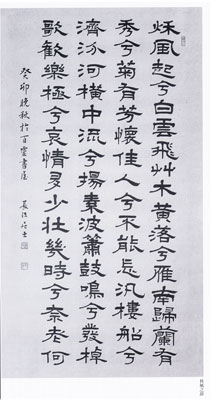 秌風起兮白雲飛艸木黃落兮雁南歸蘭有
秀兮菊有芳懷佳人兮不能忘汎樓船兮
濟汾河橫中流兮揚素波簫鼓鳴兮發棹
歌歡樂極兮哀情多少壯幾時兮奈老何
癸卯晚秋於百靈書屋
居士